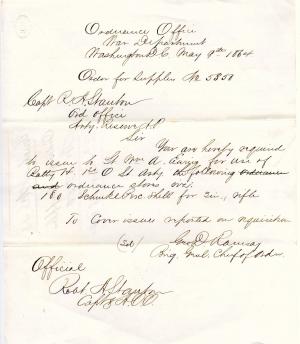 Ordnance Office
War Department
Washington D.C. May 9th 1864
Order for Supplies No 5850
Capt R. A. Stanton
Ord Office
Arty. Reserve A.P.
Sir
You are hereby required
to issue to Lt Wm A. Ewing for use of
Batty H, 1st O Lt Arty the following ordnance
and ordnance stores viz:
160 Schenkl Perc Shell for 3 in. rifle
To cover issues reported on requisition
Geo D Ramsay
Brig. Genl. Chief of Ordn.
Official
Robt A. Stanton